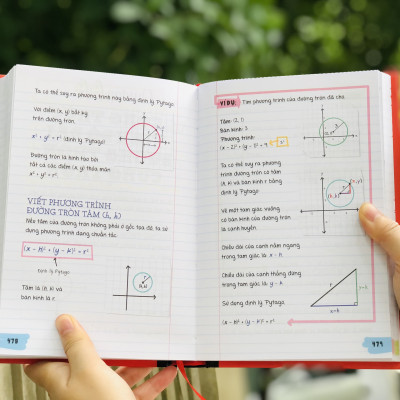 Ta có thể suy ra phương trình này bằng định lý Pytago.
Với điểm (x, y) bất kỳ
trên đường tròn.
x² + y² = r² (định lý Pytago)
Đường tròn là hình hợp bởi
tất cả các điểm (x, y) thỏa mãn
x² + y² = r².
VIẾT PHƯƠNG TRÌNH
ĐƯỜNG TRÒN TÂM (h, k)
Nếu tâm của đường tròn không phải ở gốc tọa độ, ta sử
dụng phương trình dạng chuẩn tắc.
(x - h)² + (y - k)² = r²
Định lý Pytago
Tâm là (h, k) và
bán kính là r.
478
VÍ DỤ: Tìm phương trình của đường tròn đã cho.
Tâm: (2, 1)
Bán kính: 3
Phương trình:
(x - 2)² + (y - 1)² = 9
Ta có thể suy ra phương
trình đường tròn có tâm
(h, k) và bán kính r bằng
định lý Pytago.
(x, y)
(h, k)
Vẽ một tam giác vuông
có bán kính của đường tròn
là cạnh huyền.
Chiều dài của cạnh nằm ngang
trong tam giác là: x - h.
Chiều dài của cạnh thẳng đứng
trong tam giác là: y - k.
Sử dụng định lý Pytago:
r
y-k
x-h
(x - h)² + (y - k)² = r²
479